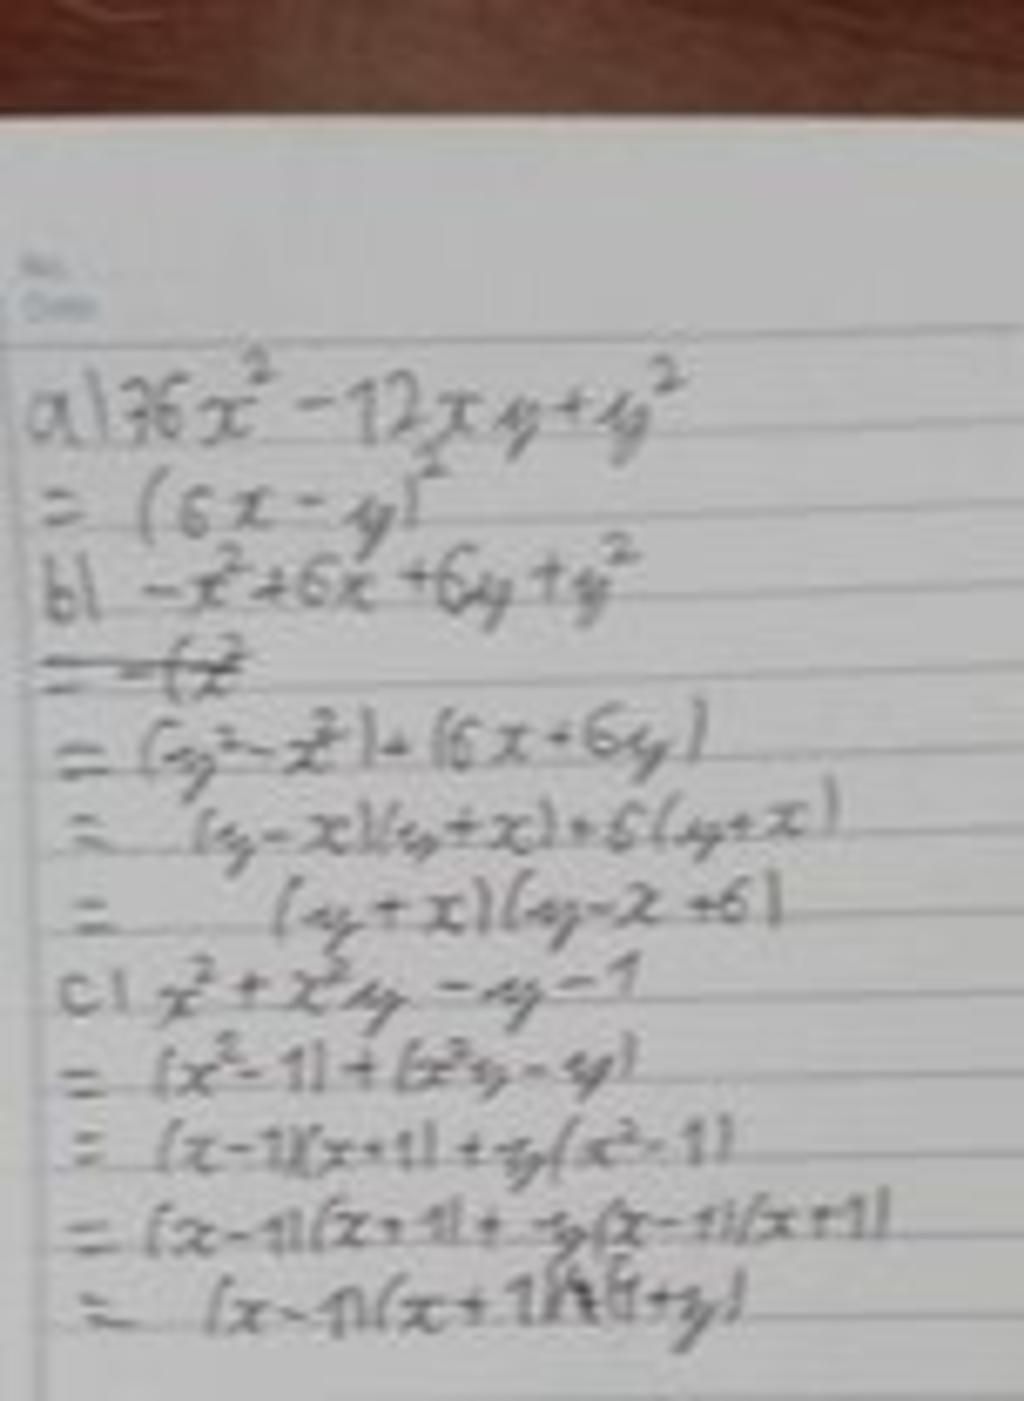 No.
Date
a) 36x² - 12xy + y²
= (6x - y)²
b) -x² + 6x + 6y + y²
= -(x²
= (y² - x²) + (6x + 6y)
= (y - x)(y + x) + 6(y + x)
= (y + x)(y - x + 6)
c) x² + x²y - y - 1
= (x² - 1) + (x²y - y)
= (x - 1)(x + 1) + y(x² - 1)
= (x - 1)(x + 1) + y(x - 1)(x + 1)
= (x - 1)(x + 1)(1 + y)